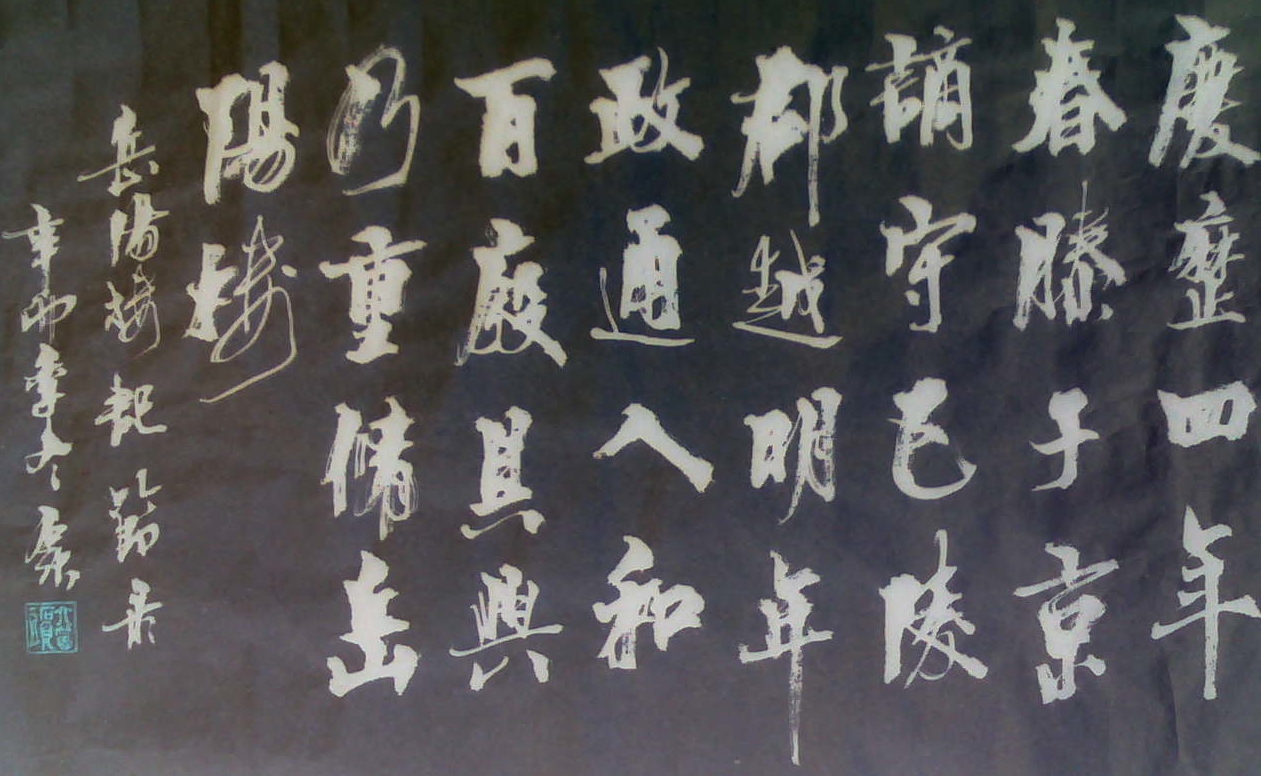 慶歷四年
春滕子京
謫守巴陵
郡越明年
政通人和
百廢具興
乃重脩岳
陽樓
岳陽樓記節录
辛卯季冬